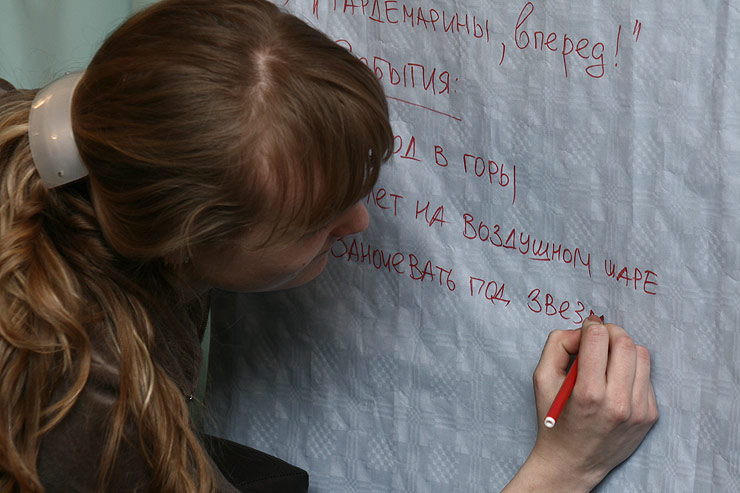 "ГАРДЕМАРИНЫ, вперед!"
СОБЫТИЯ:
В ГОРЫ
НА ВОЗДУШНОМ ШАРЕ
ЗАНОЧЕВАТЬ ПОД